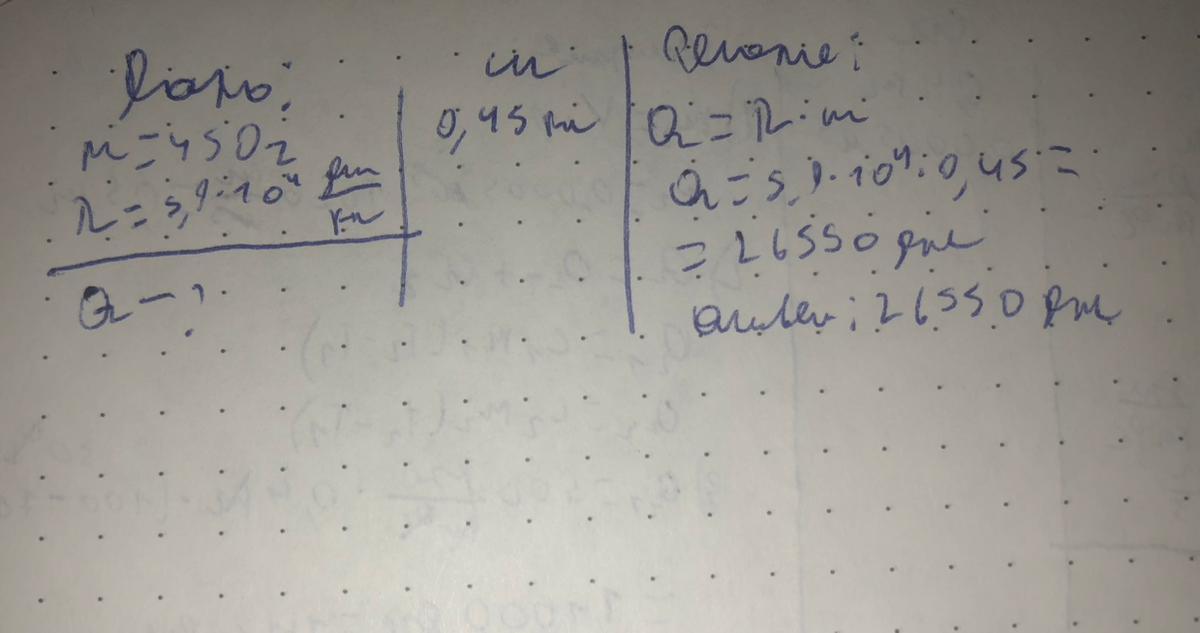 Дано:
m = 450 г
λ = 5,9 · 10⁴ Дж/кг
Q - ?
си
0,45 кг
Решение:
Q = λ · m
Q = 5,9 · 10⁴ · 0,45 =
= 26550 Дж
Ответ: 26550 Дж